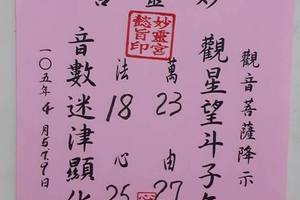 觀音菩薩降示
觀星望斗子
萬 23 由 27
妙靈宮
懿旨印
法 18 心 25
音數迷津顯
一〇五年4月5.7.9日